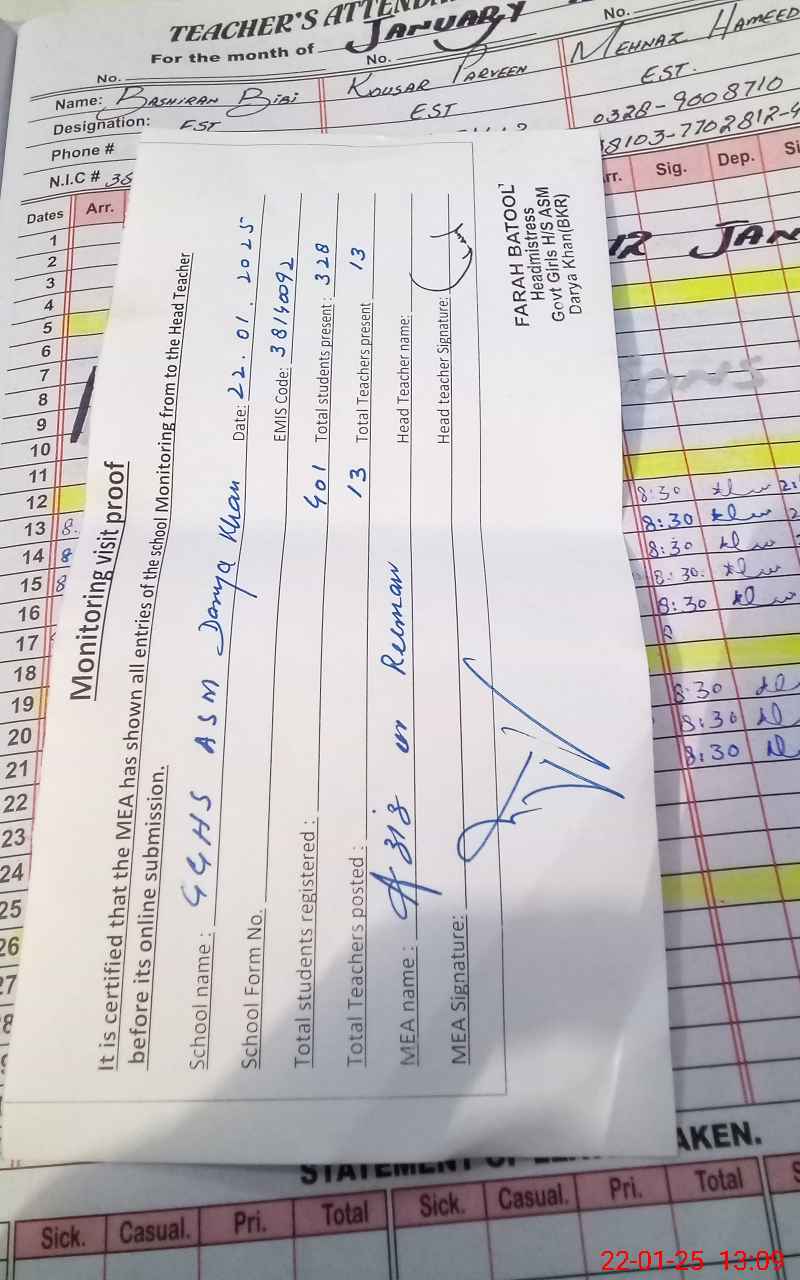 TEACHER'S ATTENDA
For the month of JANUARY
No. No. No.
Name: BASHIRAN BIBI KOUSAR PARVEEN MEHNAZ HAMEED
Designation: EST EST EST.
Phone # 0328-9008710
N.I.C # 38 8103-7702812-4
Dates Arr. Sig. Dep.
1
2
3
4
5
6
7
8
9
10
11
12
13 8.
14 8
15 8
16
17
18
19
20
21
22
23
24
25
26
27
12 JAN
8:30
8:30
8:30
8:30.
8:30
8:30
8:30
8:30
Monitoring visit proof
It is certified that the MEA has shown all entries of the school Monitoring from to the Head Teacher
before its online submission.
School name : GGHS ASM Darya Khan Date: 22.01.2025
School Form No. EMIS Code: 38140092
Total students registered : 401 Total students present : 328
Total Teachers posted : 13 Total Teachers present : 13
MEA name : Aziz ur Rehman Head Teacher name:
MEA Signature: Head teacher Signature:
FARAH BATOOL
Headmistress
Govt Girls H/S ASM
Darya Khan(BKR)
STATEMENT OF AKEN.
Sick. Casual. Pri. Total Sick. Casual. Pri. Total
22-01-25 13:09